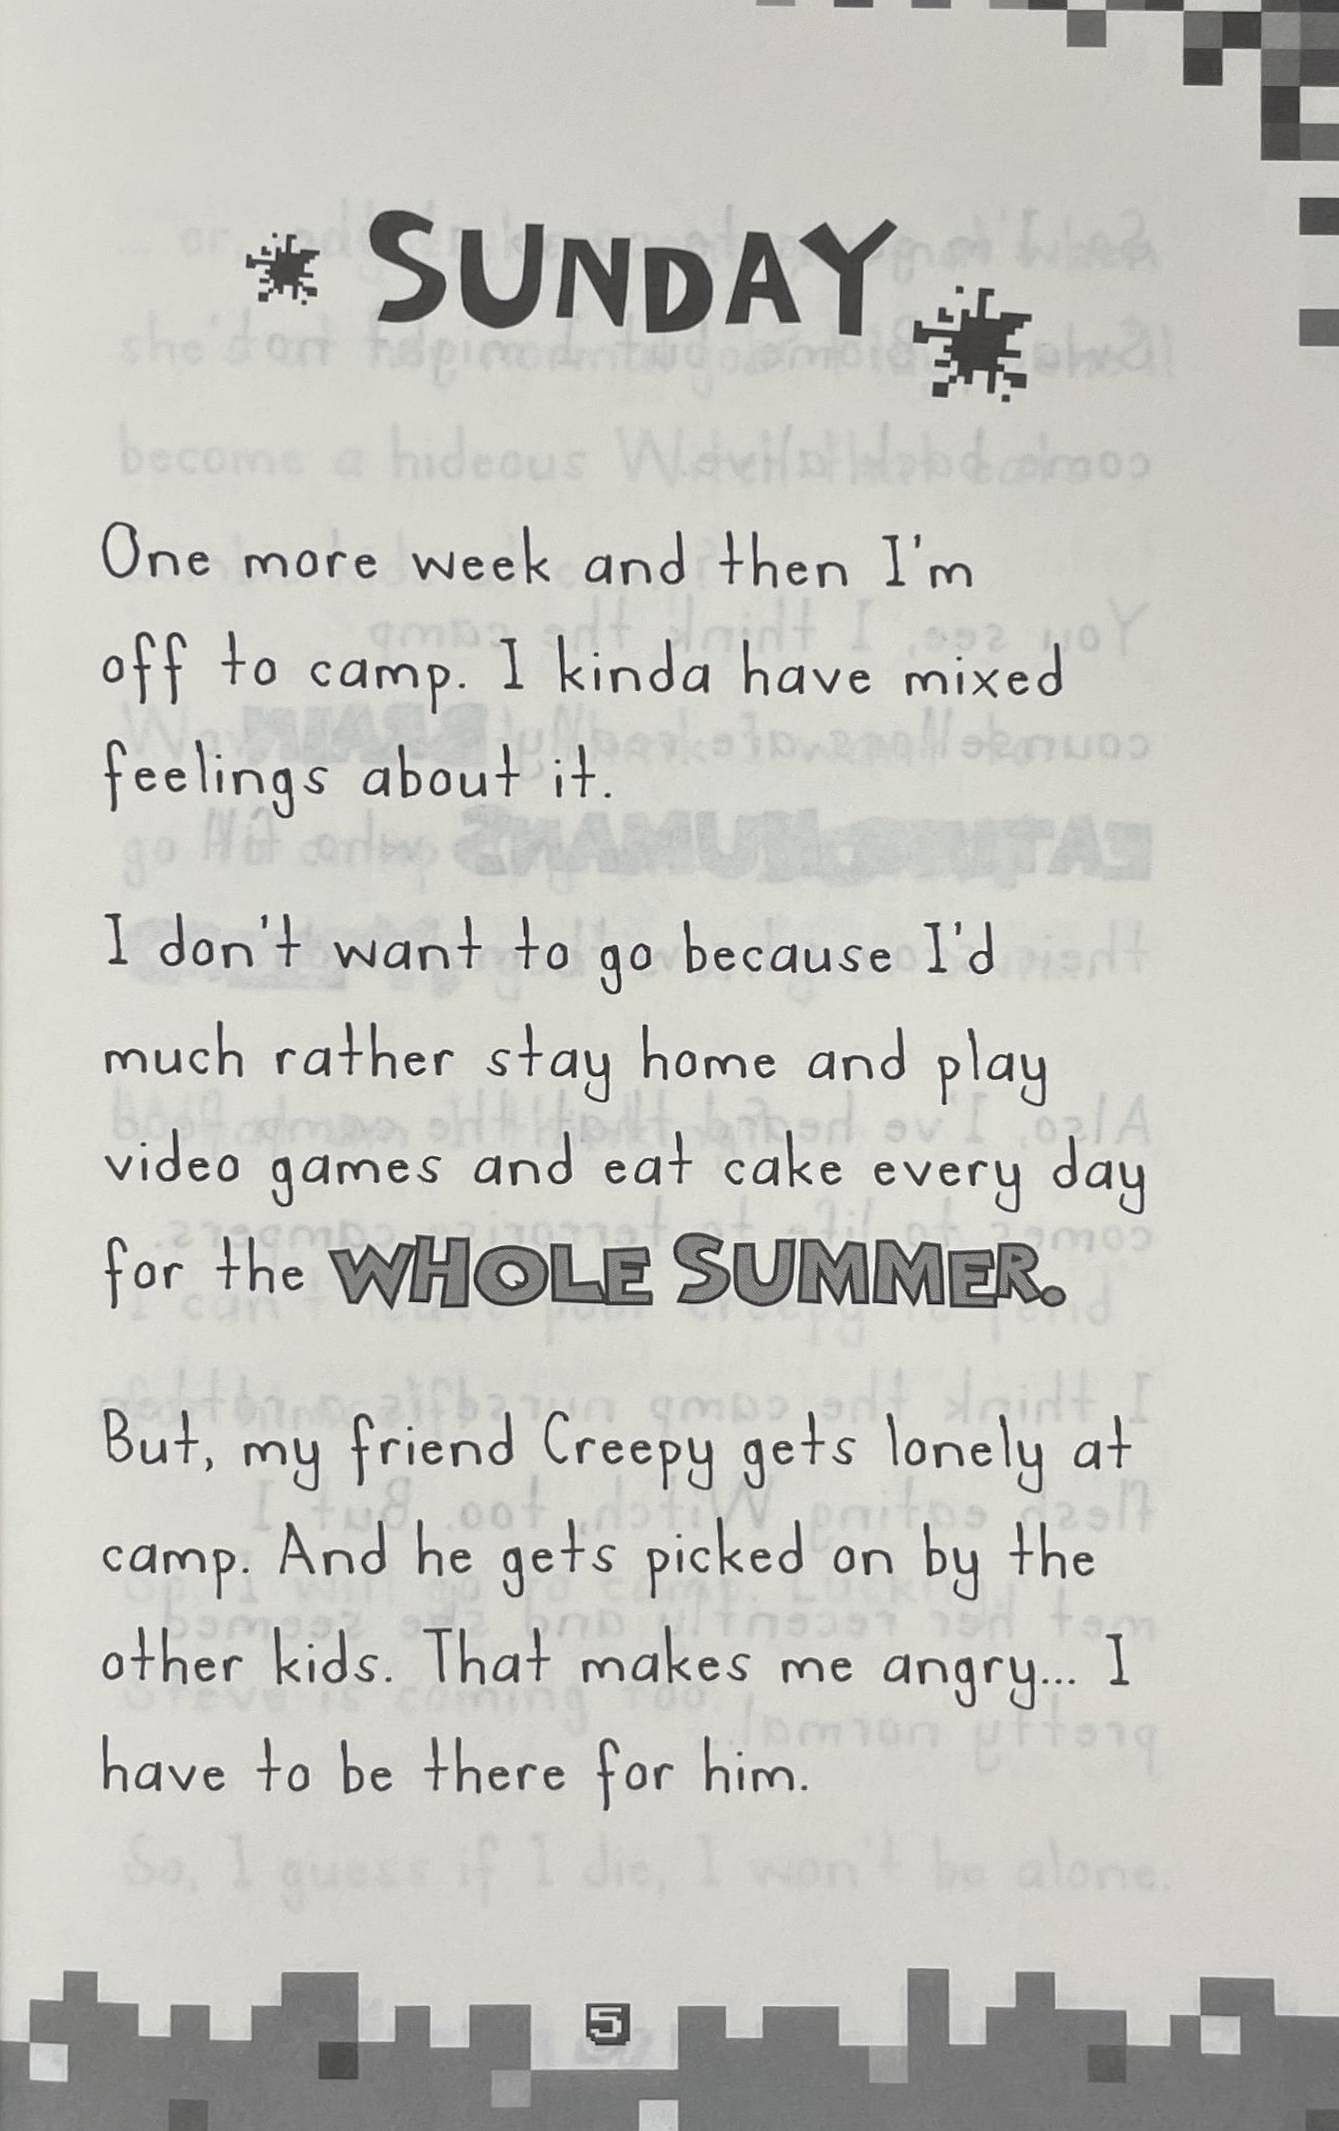 SUNDAY
One more week and then I'm
off to camp. I kinda have mixed
feelings about it.
I don't want to go because I'd
much rather stay home and play
video games and eat cake every day
for the WHOLE SUMMER.
But, my friend Creepy gets lonely at
camp. And he gets picked on by the
other kids. That makes me angry... I
have to be there for him.
So, I guess if I die, I won't be alone.
5